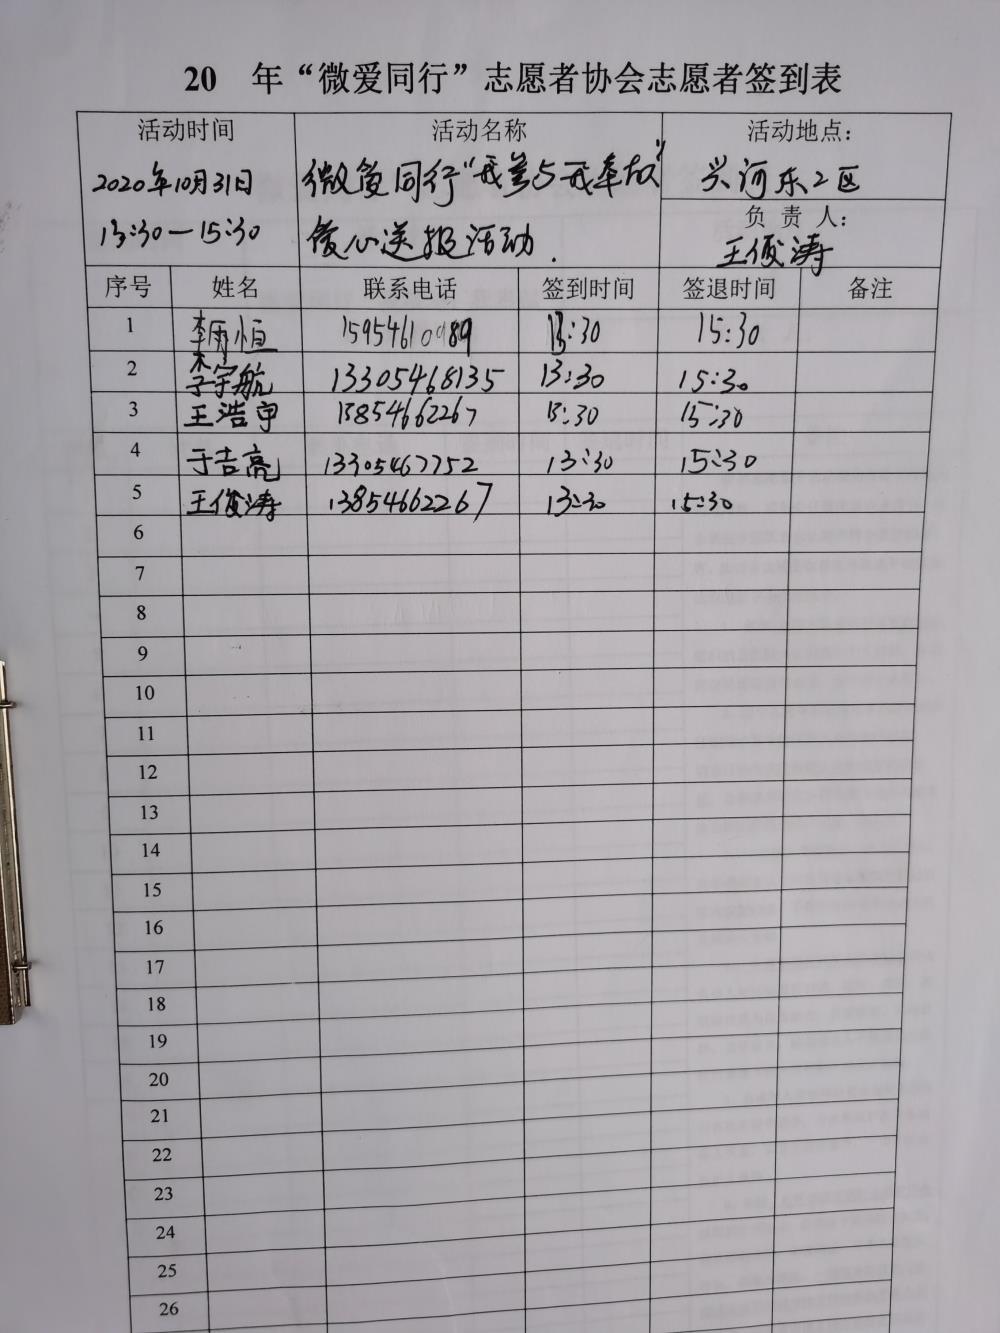 20 年“微爱同行”志愿者协会志愿者签到表
活动时间 活动名称 活动地点：
2020年10月31日 微爱同行“我参与我奉献” 兴河东2区
13:30—15:30 爱心送报活动. 负 责 人：
王俊涛
序号 姓名 联系电话 签到时间 签退时间 备注
1 李雨恒 15954610989 13:30 15:30
2 李宇航 13305468135 13:30 15:30
3 王浩宇 13854662267 13:30 15:30
4 于吉亮 13305467752 13:30 15:30
5 王俊涛 13854662267 13:30 15:30
6
7
8
9
10
11
12
13
14
15
16
17
18
19
20
21
22
23
24
25
26